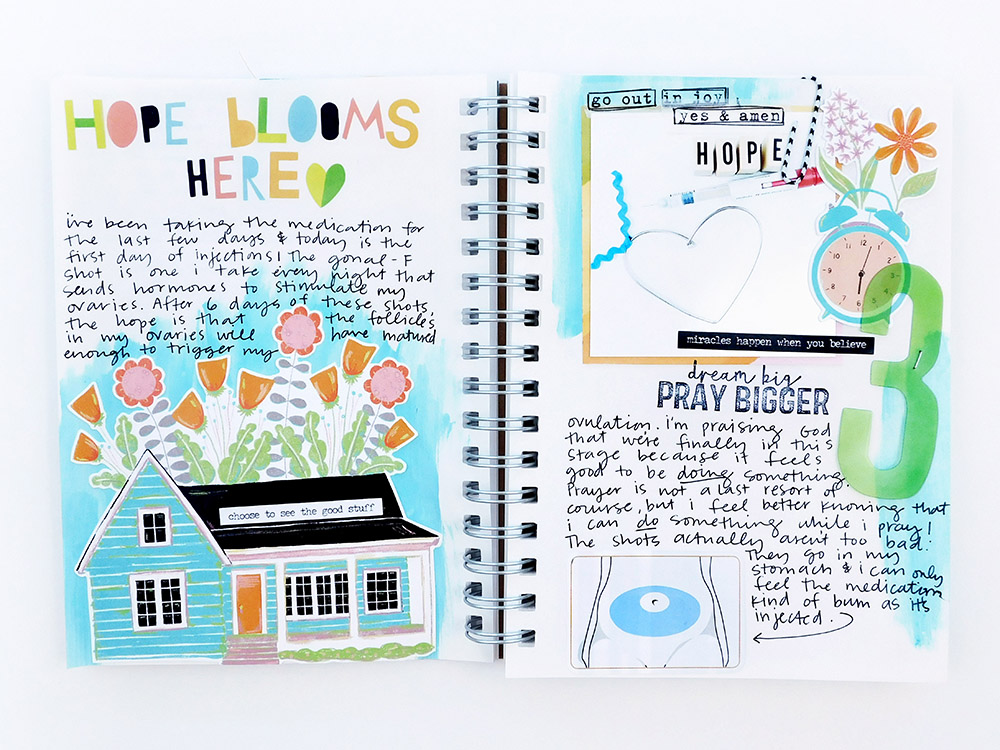 HOPE bLOOMS
HERE
i've been taking the medication for
the last few days & today is the
first day of injections! The gonal-F
shot is one i take every night that
sends hormones to stimulate my
ovaries. After 6 days of these shots,
the hope is that the follicles
in my ovaries will have matured
enough to trigger my
choose to see the good stuff
go out in joy
yes & amen
HOPE
12
3
6
9
miracles happen when you believe
3
dream big
PRAY BIGGER
ovulation. i'm praising God
that we're finally in this
stage because it feels
good to be doing something.
Prayer is not a last resort of
course, but i feel better knowing that
i can do something while i pray!
The shots actually aren't too bad.
They go in my
stomach & i can only
feel the medication
kind of burn as its
injected.